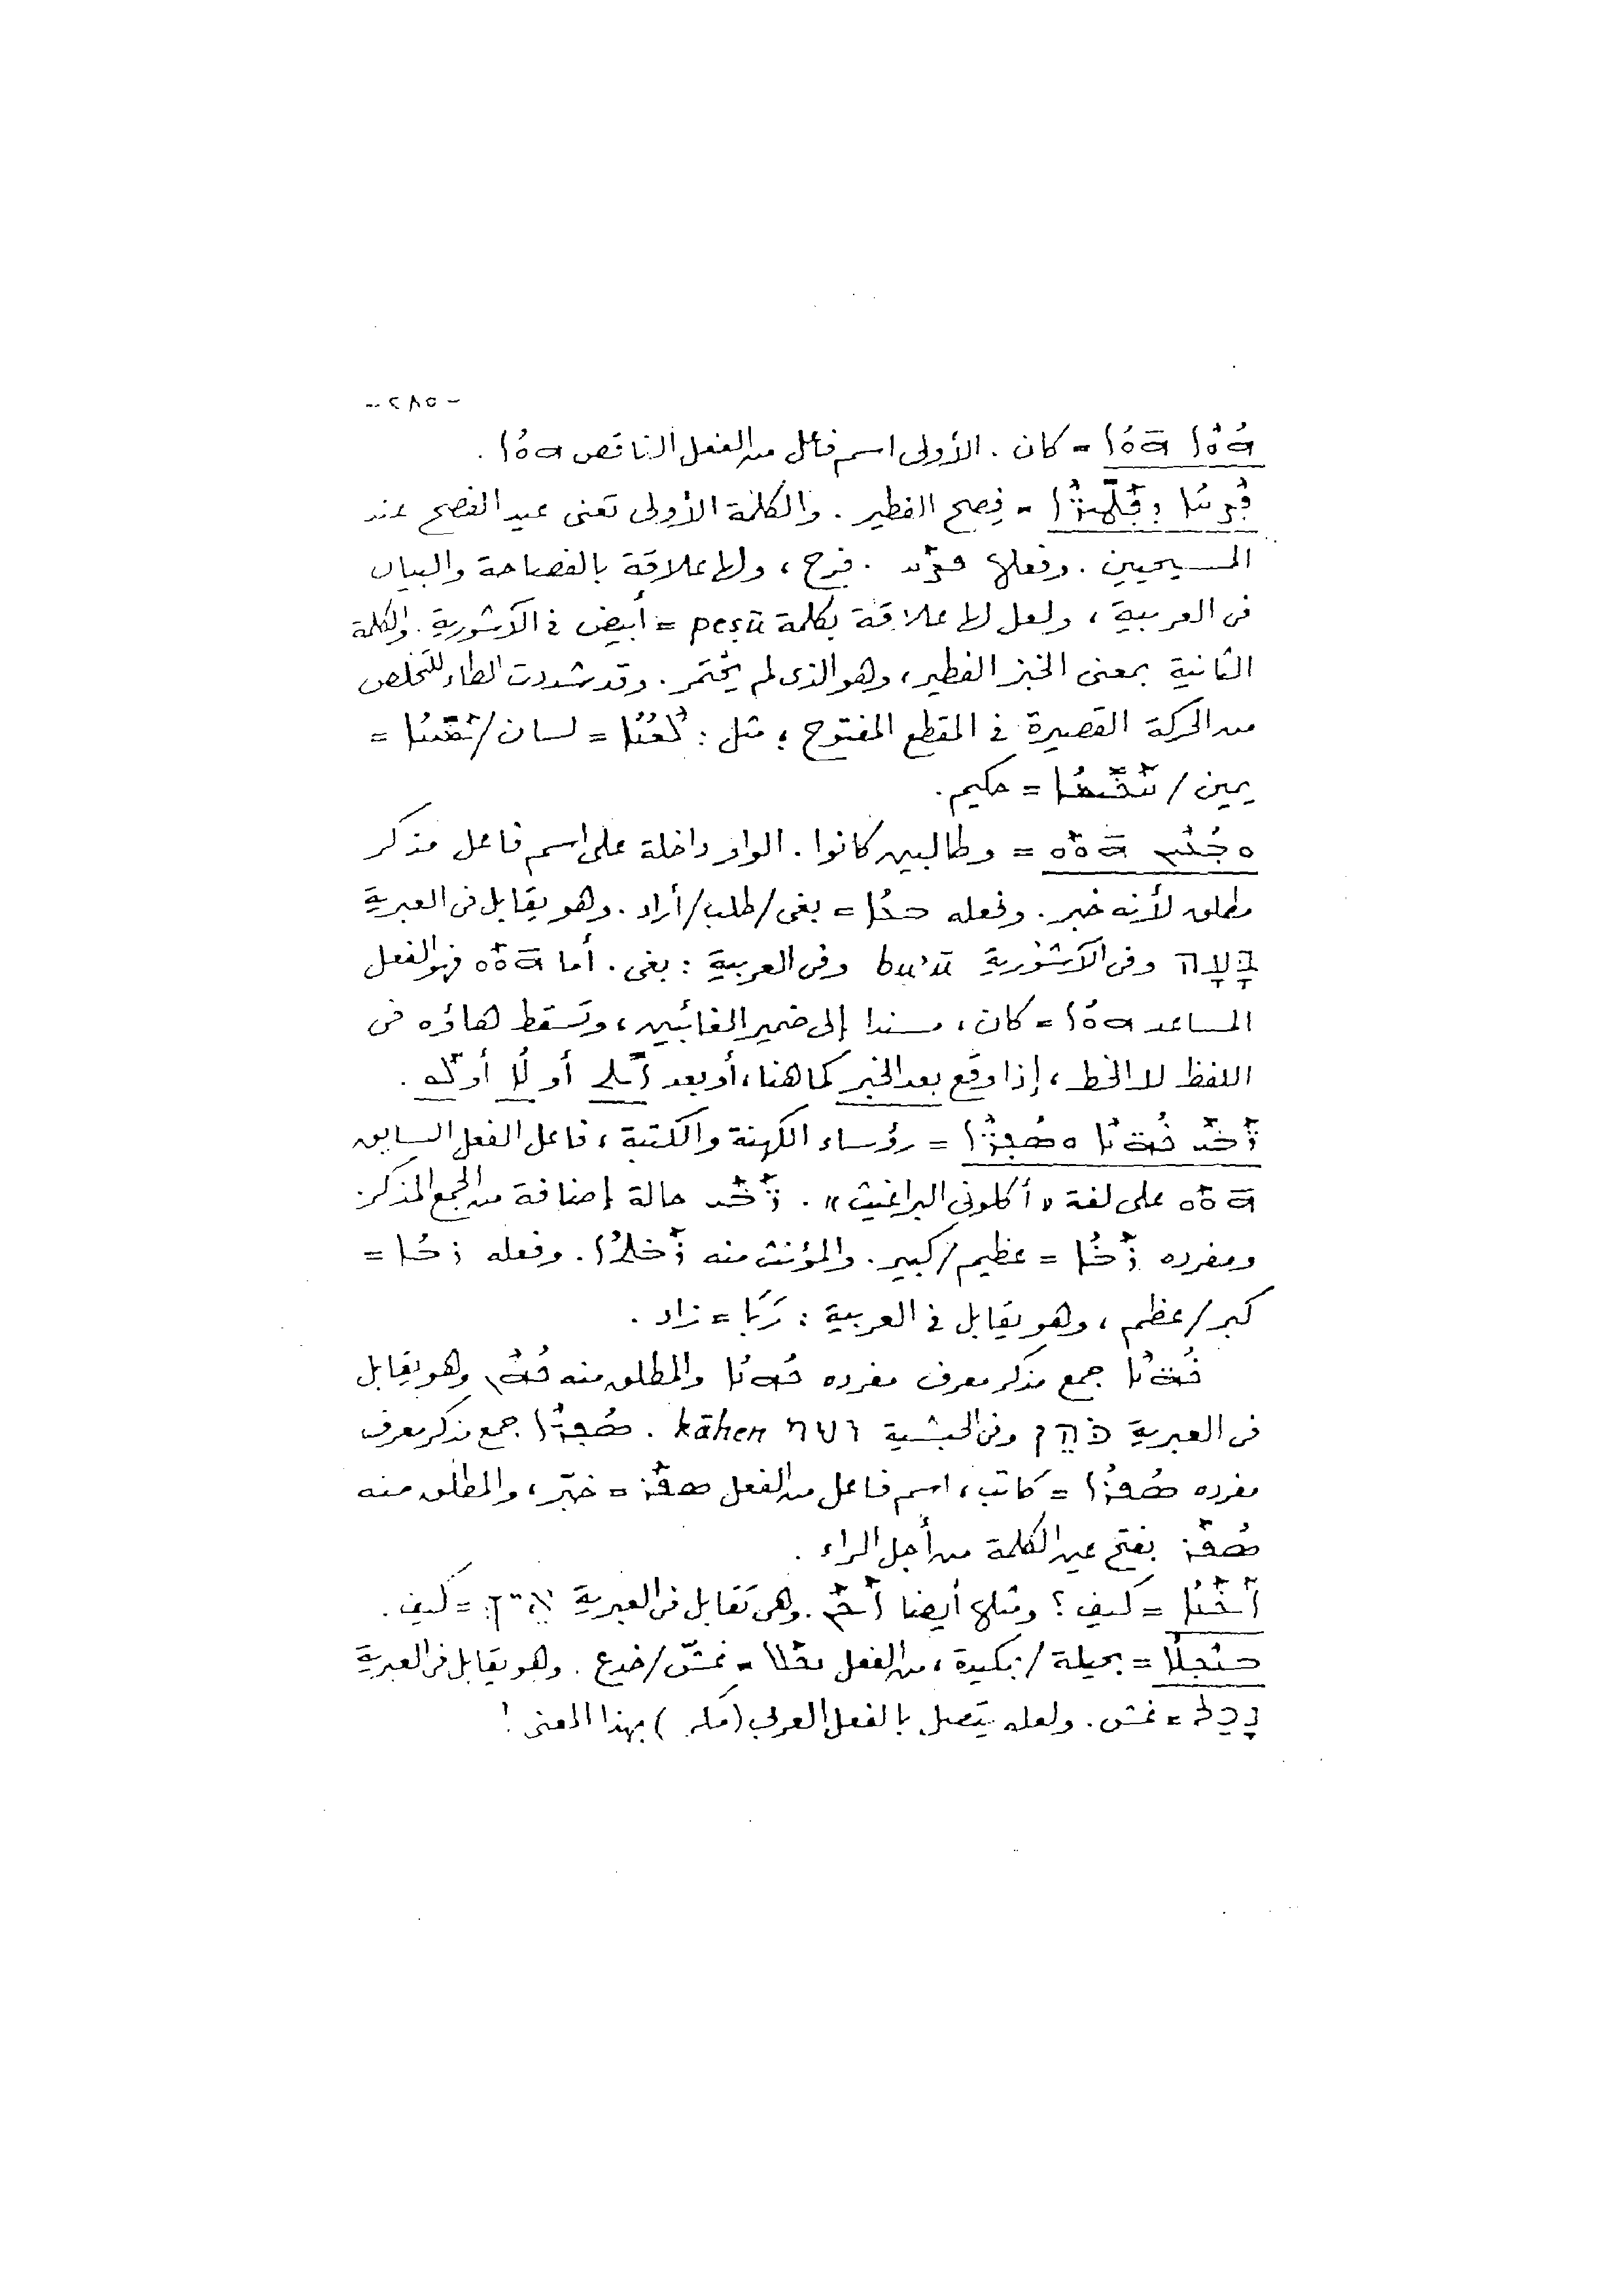 -٢٨٥-
ܗܳܘܶܐ ܗ̄ܘܳܐ = كان . الأولى اسم فاعل من الفعل الناقص ܗܘܳܐ .
ܦܶܨܚܳܐ ܕܦܰܛܺܝܪ̈ܶܐ = فِصح الفطير . والكلمة الأولى تعنى عيد الفصح عند
المسيحيين . وفعلها ܦܨܰܚ . فرح ، ولها علاقة بالفصاحة والبيان
فى العربية ، ولعل لها علاقة بكلمة peṣū = أبيض فى الآشورية . والكلمة
الثانية بمعنى الخبز الفطير ، وهو الذى لم يختمر . وقد شددت الطاء للتخلص
من الحركة القصيرة فى المقطع المفتوح ؛ مثل : ܠܶܫܳܢܳܐ = لسان / ܝܰܡܺܝܢܳܐ =
يمين / ܚܰܟܺܝܡܳܐ = حكيم .
ܘܒܳܥܶܝܢ ܗ̄ܘܰܘ = وطالبين كانوا . الواو داخلة على اسم فاعل مذكر
مطلق لأنه خبر . وفعله ܒܥܳܐ = بغى / طلب / أراد . وهو يقابل فى العبرية
בָּעָה وفى الآشورية bu'ū وفى العربية : بغى . أما ܗ̄ܘܰܘ فهو الفعل
المساعد ܗܘܳܐ = كان ، مسندا إلى ضمير الغائبين ، وتسقط هاؤه فى
اللفظ لا الخط ، إذا وقع بعد الخبر كما هنا ، أو بعد ܐܺܝܬ أو ܠܳܐ أو ܠܰܘ .
ܪ̈ܰܒܰܝ ܟܳܗ̈ܢܶܐ ܘܣܳܦܪ̈ܶܐ = رؤساء الكهنة والكتبة ، فاعل الفعل السابق
ܗ̄ܘܰܘ على لغة « أكلونى البراغيث » . ܪ̈ܰܒܰܝ حالة إضافة من الجمع المذكر
ومفرده ܪܰܒܳܐ = عظيم / كبير . والمؤنث منه ܪܰܒܬܳܐ . وفعله ܪܒܳܐ =
كبر / عظم ، وهو يقابل فى العربية : رَبَا = زاد .
ܟܳܗ̈ܢܶܐ جمع مذكر معرف مفرده ܟܳܗܢܳܐ والمطلق منه ܟܳܗܶܢ وهو يقابل
فى العبرية כֹּהֵן وفى الحبشية ካህን kāhen . ܣܳܦܪ̈ܶܐ جمع مذكر معرف
مفرده ܣܳܦܪܳܐ = كاتب ، اسم فاعل من الفعل ܣܦܰܪ = خبّر ، والمطلق منه
ܣܳܦܰܪ بفتح عين الكلمة من أجل الراء .
ܐܰܝܟܰܢܳܐ = كيف ؟ ومثلها أيضا ܐܰܝܟܰܢ . وهى تقابل فى العبرية אֵיךְ = كيف .
ܒܢܶܟܠܳܐ = بحيلة / بمكيدة ، من الفعل ܢܟܰܠ = غشّ / خدع . وهو يقابل فى العبرية
נָכַל = غش . ولعله يتصل بالفعل العربى ( مكر ) بهذا المعنى !